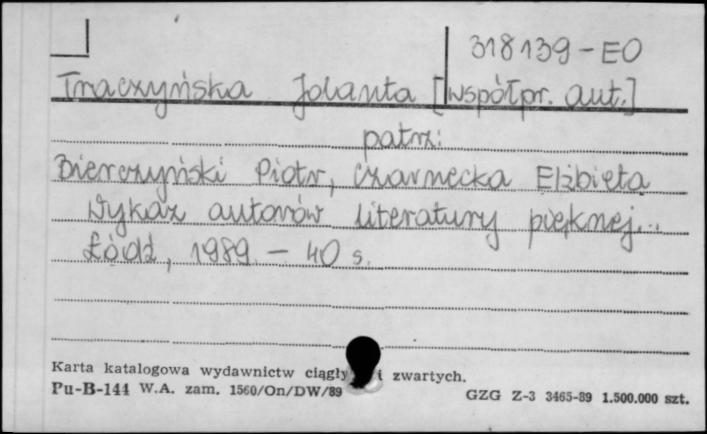 318139-EO
Traczyńska Jolanta [współpr. aut.]
patrz:
Bierczyński Piotr, Czarnecka Elżbieta
Wykaz autorów literatury pięknej...
Łódź, 1989. - 40 s.
Karta katalogowa wydawnictw ciągły i zwartych.
Pu-B-144 W.A. zam. 1560/On/DW/89
GZG Z-3 3465-89 1.500.000 szt.